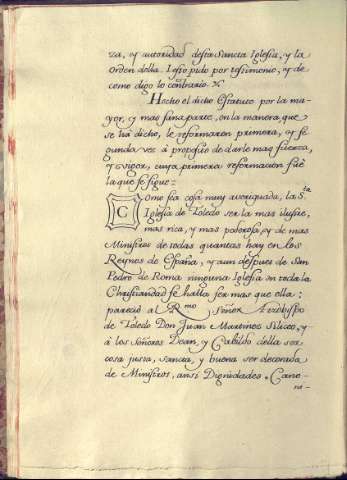 za, y autoridad desta Sancta Iglesia, y la
orden della. Esto pido por testimonio, y de
como digo lo contrario.
Hecho el dicho Estatuto por la ma-
yor, y mas sana parte, en la manera, que
se ha dicho, le reformaron primera, y se
gunda vez à proposito de darle mas fuerza,
y vigor, cuya primera reformacion fuè
la que se sigue:
Como sea cosa muy averiguada, la S.ta
Iglesia de Toledo ser la mas ilustre,
mas rica, y mas poderosa, y de mas
Ministros de todas quantas hay en los
Reynos de España, y aun despues de San
Pedro de Roma ninguna Iglesia en toda la
Christiandad se halla ser mas que ella:
pareciò al R.mo Señor Arzobispo
de Toledo Don Juan Martines Siliceo, y
à los Señores Dean, y Cabildo della ser
cosa justa, sancta, y buena ser decorada
de Ministros, ansi Dignidades, Cano-
ni-